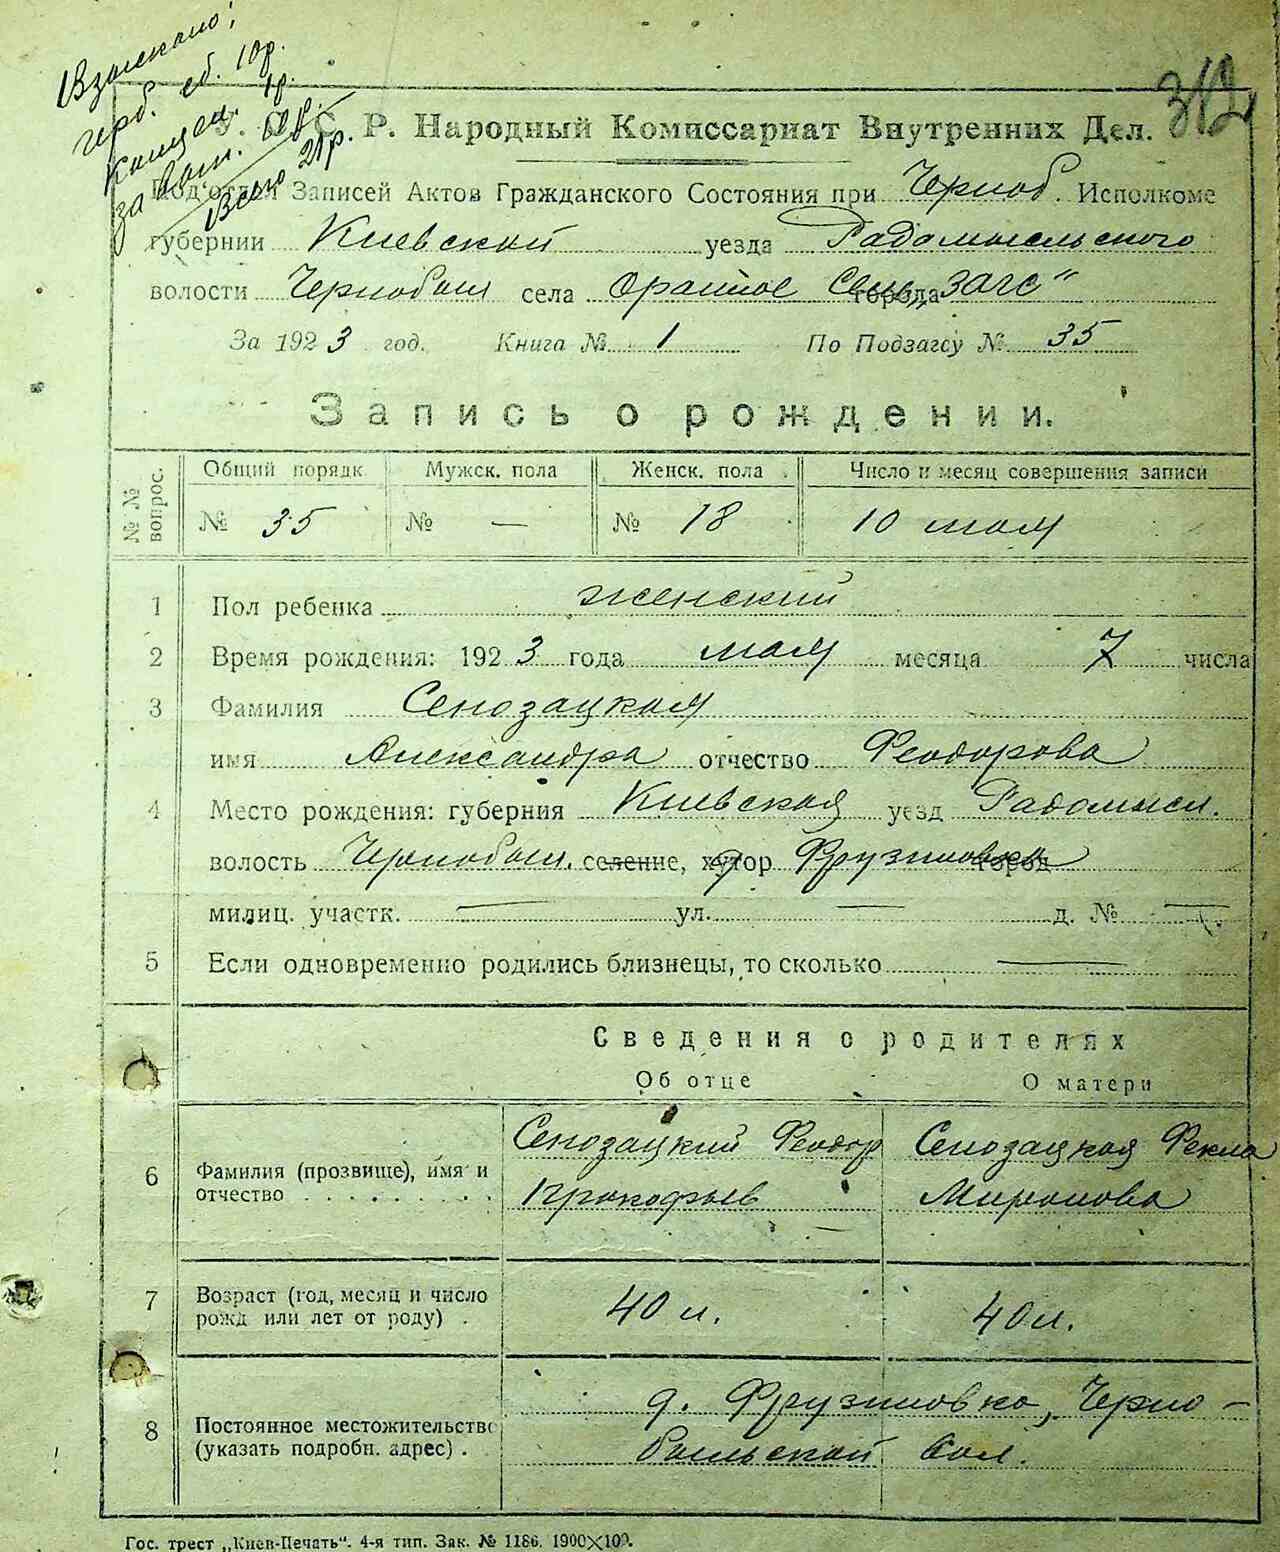 Взыскано:
герб. сб. 10р.
Канцел. 1р.
за бланк.
Всего 21р.
312
У. С. С. Р. Народный Комиссариат Внутренних Дел.
Под'отдел Записей Актов Гражданского Состояния при Черноб. Исполкоме
губернии Киевской уезда Радомысльского
волости Чернобыл села Оранное Сель „ЗАГС" города
За 1923 год. Книга № 1 По Подзагсу № 35
Запись о рождении.
№ № вопрос.
Общий порядк. Мужск. пола Женск. пола Число и месяц совершения записи
№ 35 № — № 18 10 мая
1 Пол ребенка женский
2 Время рождения: 1923 года мая месяца 7 числа
3 Фамилия Сенозацкая
имя Александра отчество Феодорова
4 Место рождения: губерния Киевская уезд Радомысл.
волость Чернобыл. селение, хутор д Фрузиновка город
милиц. участк. — ул. — д. № —
5 Если одновременно родились близнецы, то сколько —
Сведения о родителях
Об отце О матери
Сенозацкий Феодор Сенозацкая Фекла
6 Фамилия (прозвище), имя и
отчество . . . . . . . . . Прокофьев Миронова
7 Возраст (год, месяц и число
рожд или лет от роду) . 40 л. 40 л.
д. Фрузиновка, Черно-
8 Постоянное местожительство
(указать подробн. адрес) . быльской вол.
Гос. трест „Киев-Печать". 4-я тип. Зак. № 1186. 1900×100.